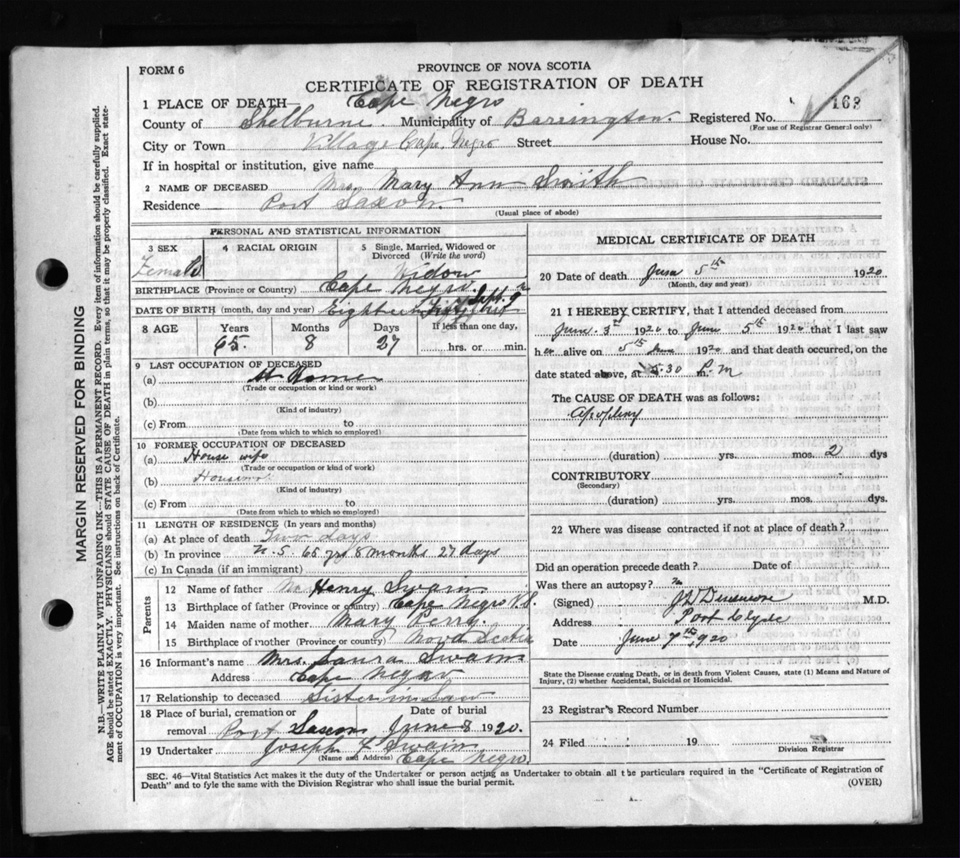 FORM 6
PROVINCE OF NOVA SCOTIA
CERTIFICATE OF REGISTRATION OF DEATH
1 PLACE OF DEATH— Cape Negro
County of Shelburne Municipality of Barrington. Registered No. 168
(For use of Registrar General only)
City or Town Village Cape Negro Street House No.
If in hospital or institution, give name
2 NAME OF DECEASED Mrs. Mary Ann Smith
Residence Port Saxon.
(Usual place of abode)
PERSONAL AND STATISTICAL INFORMATION
3 SEX Female
4 RACIAL ORIGIN
5 Single, Married, Widowed or Divorced (Write the word) Widow
BIRTHPLACE (Province or Country) Cape Negro.
DATE OF BIRTH (month, day and year) Sept. 9 Eighteen
8 AGE Years Months Days If less than one day,
65. 8 27 hrs. or min.
9 LAST OCCUPATION OF DECEASED
(a) At Home
(Trade or occupation or kind of work)
(b)
(Kind of industry)
(c) From to
(Date from which to which so employed)
10 FORMER OCCUPATION OF DECEASED
(a) House wife
(Trade or occupation or kind of work)
(b)
(Kind of industry)
(c) From to
(Date from which to which so employed)
11 LENGTH OF RESIDENCE (In years and months)
(a) At place of death Two days
(b) In province N.S 65 yrs 8 months 27 days
(c) In Canada (if an immigrant)
Parents
12 Name of father Henry Swain.
13 Birthplace of father (Province or country) Cape Negro N.S.
14 Maiden name of mother Mary Perry.
15 Birthplace of mother (Province or country) Nova Scotia
16 Informant's name Mrs. Laura Swain
Address Cape Negro
17 Relationship to deceased Sister in Law
18 Place of burial, cremation or removal Port Saxon Date of burial June 8 1920.
19 Undertaker Joseph L Swain
(Name and Address) Cape Negro
MEDICAL CERTIFICATE OF DEATH
20 Date of death June 5th 1920
(Month, day and year)
21 I HEREBY CERTIFY, that I attended deceased from
June 3rd 1920 to June 5th 1920 that I last saw
her alive on 5th June 1920 and that death occurred, on the
date stated above, at 5.30 P.m
The CAUSE OF DEATH was as follows:
Apoplexy
(duration) yrs. mos. 2 dys
CONTRIBUTORY
(Secondary)
(duration) yrs. mos. dys.
22 Where was disease contracted if not at place of death?
Did an operation precede death? Date of
Was there an autopsy? no
(Signed) M.D.
Address Port Clyde
Date June 7th 1920
State the Disease causing Death, or in death from Violent Causes, state (1) Means and Nature of Injury, (2) whether Accidental, Suicidal or Homicidal.
23 Registrar's Record Number
24 Filed 19
Division Registrar
SEC. 46—Vital Statistics Act makes it the duty of the Undertaker or person acting as Undertaker to obtain all the particulars required in the "Certificate of Registration of
Death" and to fyle the same with the Division Registrar who shall issue the burial permit. (OVER)
MARGIN RESERVED FOR BINDING
N.B.—WRITE PLAINLY WITH UNFADING INK—THIS IS A PERMANENT RECORD. Every item of information should be carefully supplied.
AGE should be stated EXACTLY. PHYSICIANS should STATE CAUSE OF DEATH in plain terms, so that it may be properly classified. Exact state-
ment of OCCUPATION is very important. See instructions on back of Certificate.